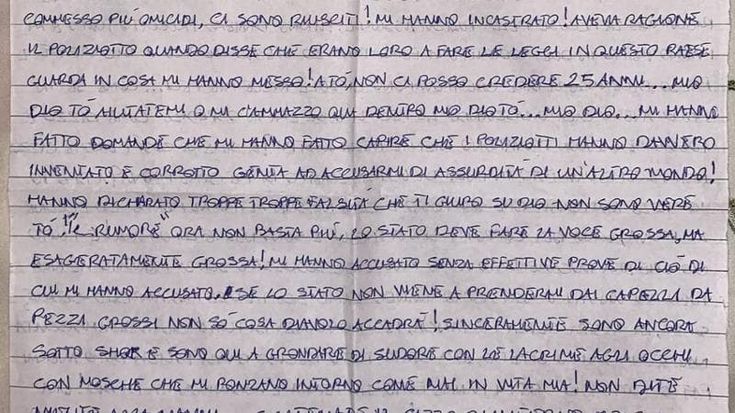 COMMESSO PIÚ OMICIDI, CI SONO RIUSCITI! MI HANNO INCASTRATO! AVEVA RAGIONE
IL POLIZIOTTO QUANDO DISSE CHE ERANO LORO A FARE LE LEGGI IN QUESTO PAESE
GUARDA IN COSA MI HANNO MESSO! A TÓ, NON CI POSSO CREDERE 25 ANNI... MIO
DIO TÓ AIUTATEMI O MI CIAMMAZZO QUI DENTRO MIO DIO TÓ... MIO DIO... MI HANNO
FATTO DOMANDE CHE MI HANNO FATTO CAPIRE CHE I POLIZIOTTI HANNO DAVVERO
INVENTATO E CORROTTO GENTA AD ACCUSARMI DI ASSURDITÁ DI UN'ALTRO MONDO!
HANNO DICHARATO TROPPE TROPPE FALSITÁ CHE TI GIURO SU DIO NON SONO VERE
TÓ, "IL RUMORE" ORA NON BASTA PIÚ, LO STATO DEVE FARE LA VOCE GROSSA, MA
ESAGERATAMENTE GROSSA! MI HANNO ACCUSATO SENZA EFFETTIVE PROVE DI CIÓ DI
CUI MI HANNO ACCUSATO. SE LO STATO NON VIENE A PRENDERMI DAI CAPELLI DA
PEZZI GROSSI NON SÓ COSA DIAVOLO ACCADRÁ! SINCERAMENTE SONO ANCORA
SOTTO SHOK E SONO QUI A GRONDARE DI SUDORE CON LE LACRIME AGLI OCCHI
CON MOSCHE CHE MI RONZANO INTORNO COME MAI IN VITA MIA! NON DITE